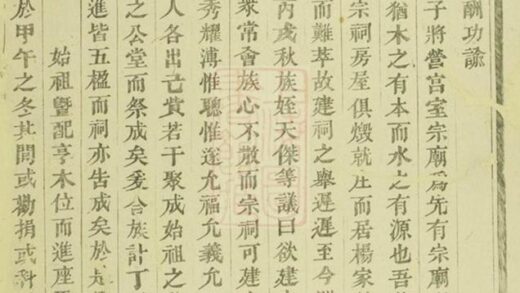 酬功諭
子將營宮室宗廟爲先有宗廟
猶木之有本而水之有源也吾
宗祠房屋俱燬就庄而居楊家
而難萃故建祠之舉遲遲至今
丙戌秋族姪天傑等議曰欲建
衆常會族心不散而宗祠可建
秀耀溥惟聰惟逐允福允義允
人各出己貲若干聚成始祖之
之公堂而祭成矣爰合族計丁
進皆五楹而祠亦告成矣於
始祖暨配享木位而進座
於甲午之冬其間或勸捐或科